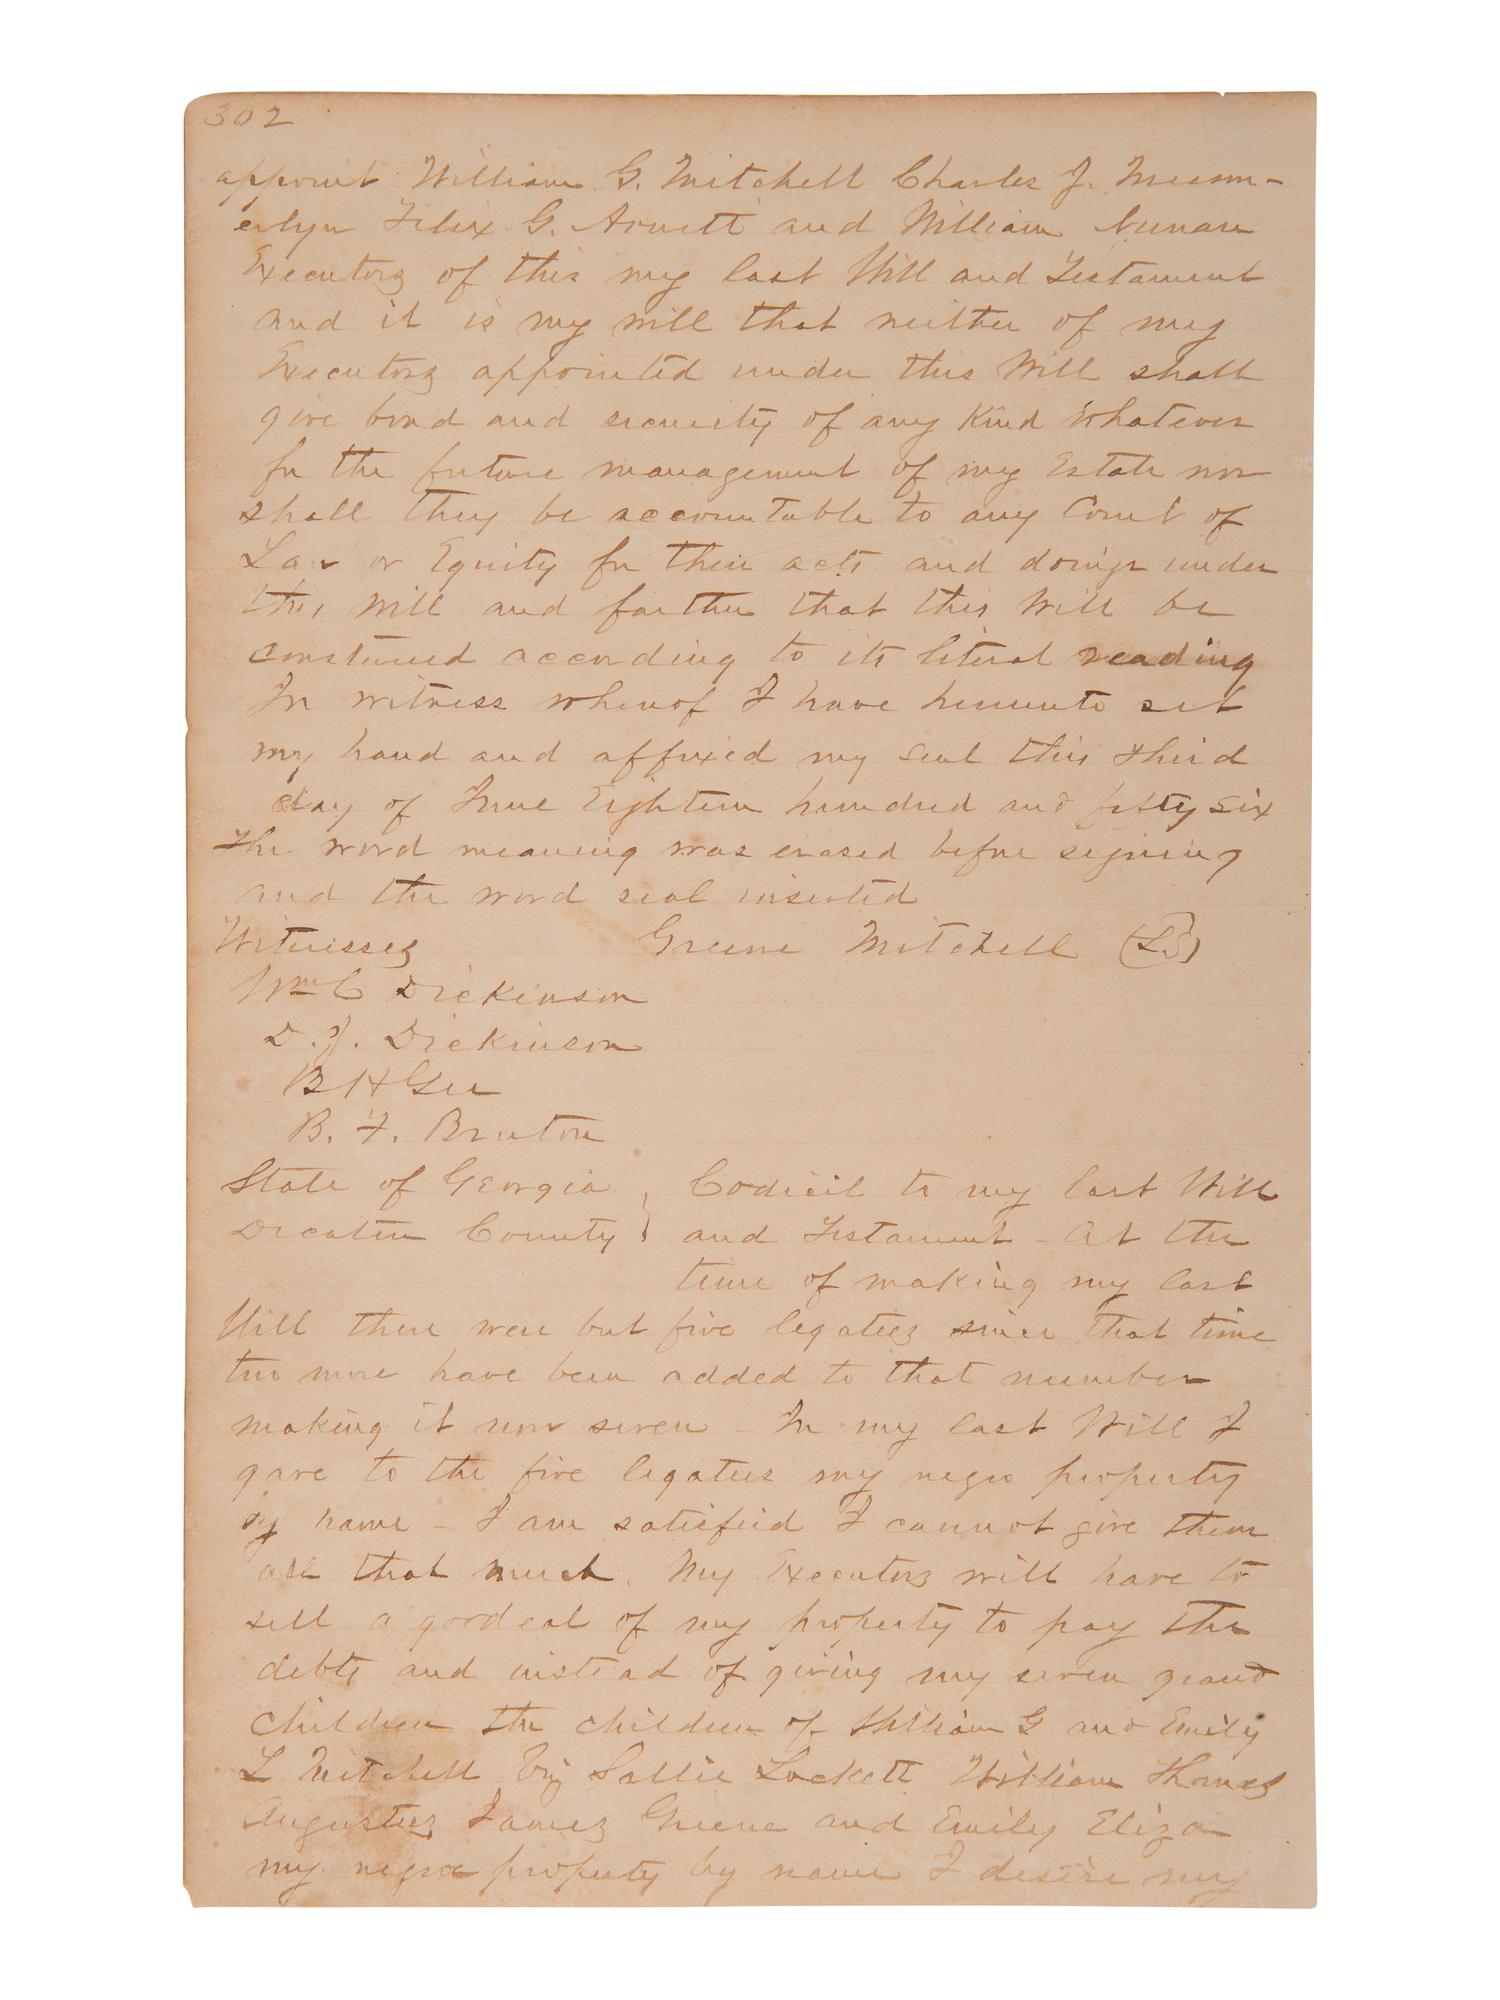 302
appoint William G. Mitchell Charles J. Munn-
erlyn Felix G. Arnett and William Nunan
Executors of this my last Will and Testament
and it is my will that neither of my
Executors appointed under this Will shall
give bond and security of any Kind Whatever
for the future management of my Estate nor
shall they be accountable to any Court of
Law or Equity for their acts and doings under
this Will and farther that this Will be
construed according to its literal reading
In witness whereof I have hereunto set
my hand and affixed my seal this third
day of June Eighteen hundred and fifty six
The word meaning was erased before signing
and the word seal inserted
Witnesses Greene Mitchell (LS)
Wm C Dickinson
D. J. Dickinson
B H Gee
B. F. Bruton
State of Georgia } Codicil to my last Will
Decatur County and Testament - At the
time of making my last
Will there were but five legatees since that time
two more have been added to that number
making it now seven - In my last Will I
gave to the five legatees my negro property
by name - I am satisfied I cannot give them
all that much. My Executors will have to
sell a good eal of my property to pay the
debts and instead of giving my seven grand
children the children of William G and Emily
L Mitchell Viz Sallie Lockett William Thomas
Augustus James Greene and Emily Eliza
my negro property by name I desire my